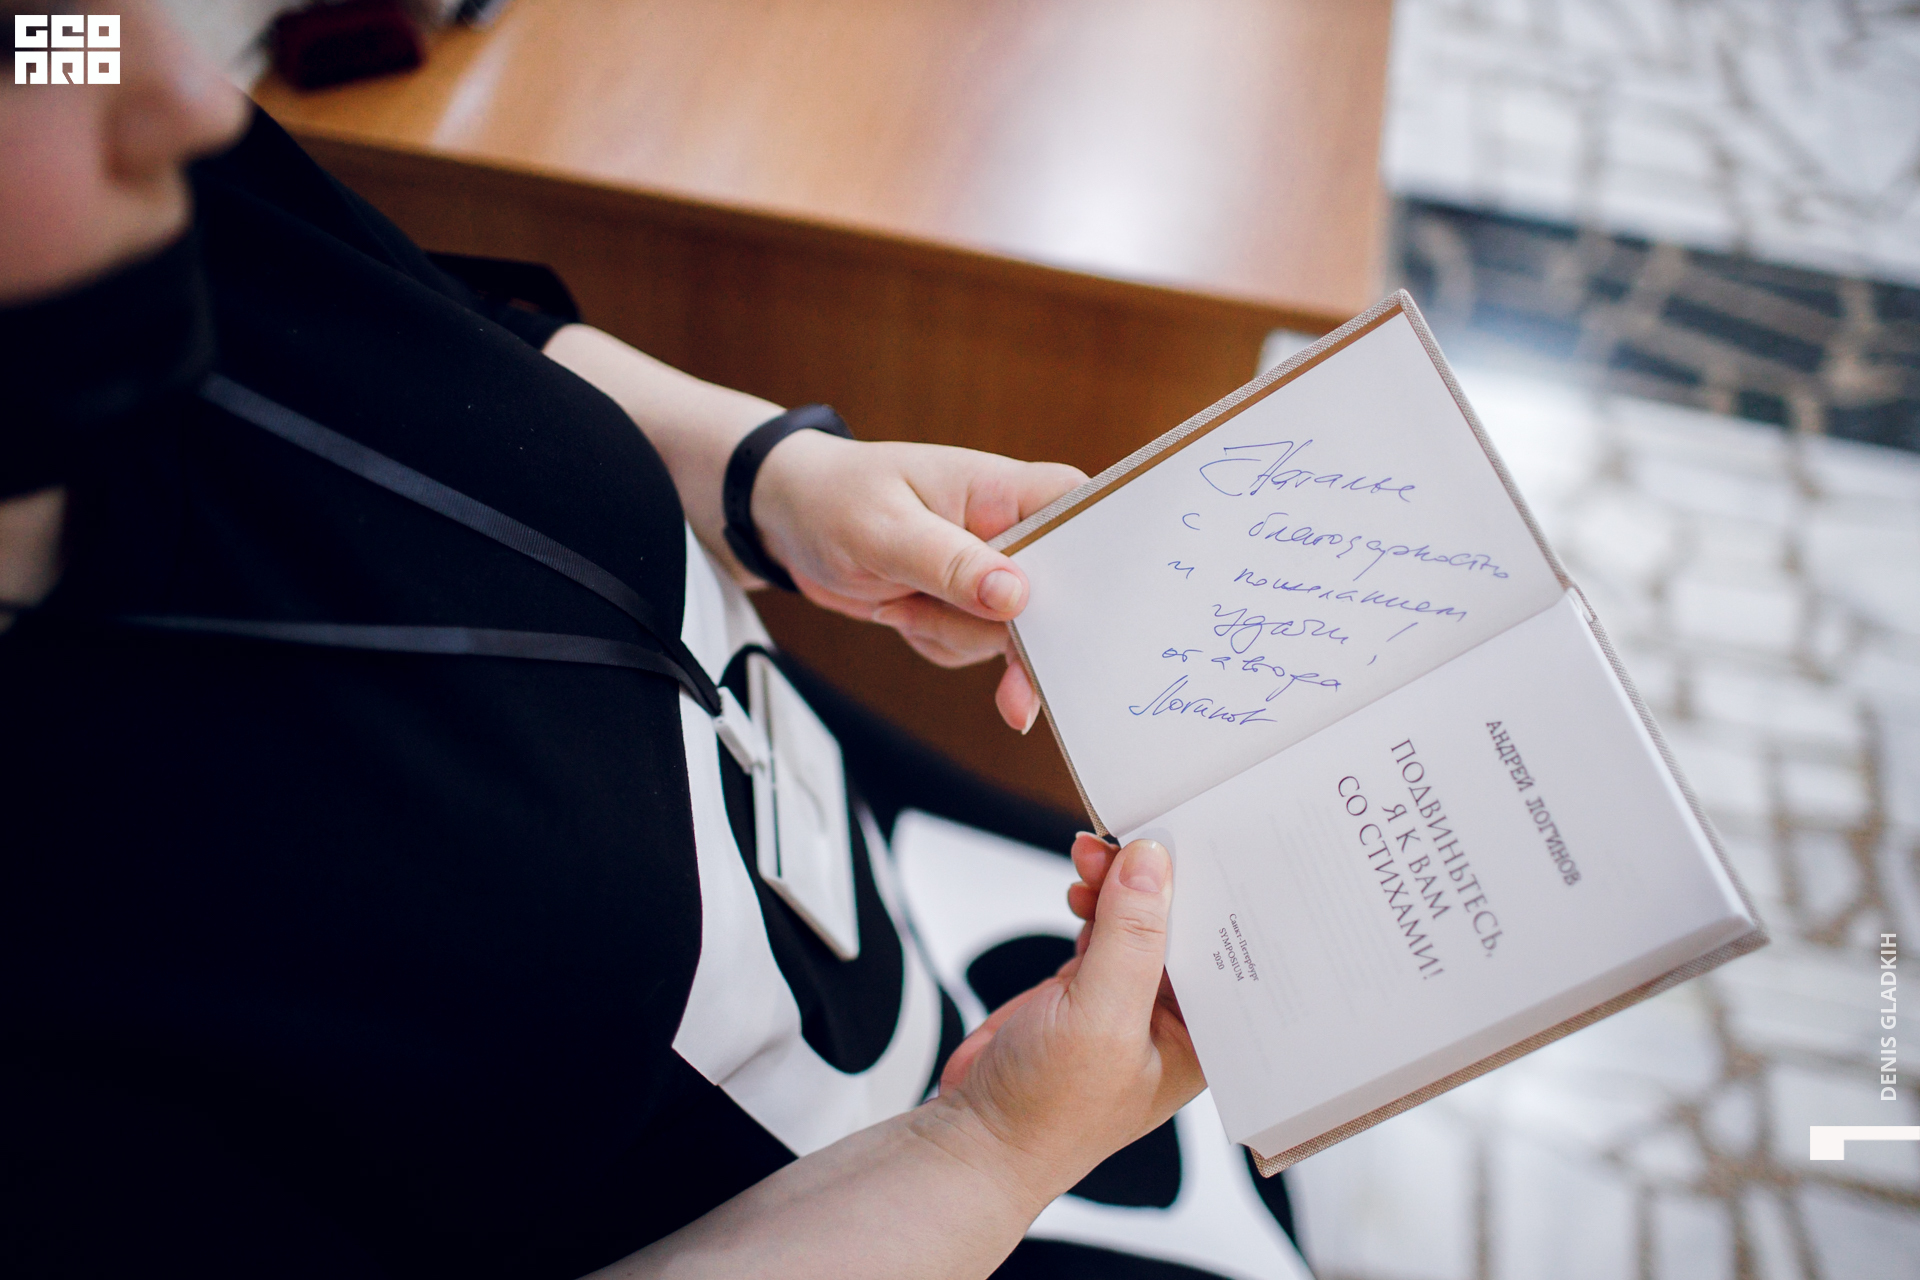 GEO
PRO
Наталье
с благодарностью
и пожеланием
удачи!
от автора
Логинов
АНДРЕЙ ЛОГИНОВ
ПОДВИНЬТЕСЬ,
Я К ВАМ
СО СТИХАМИ!
Санкт-Петербург
SYMPOSIUM
2020
DENIS GLADKIH